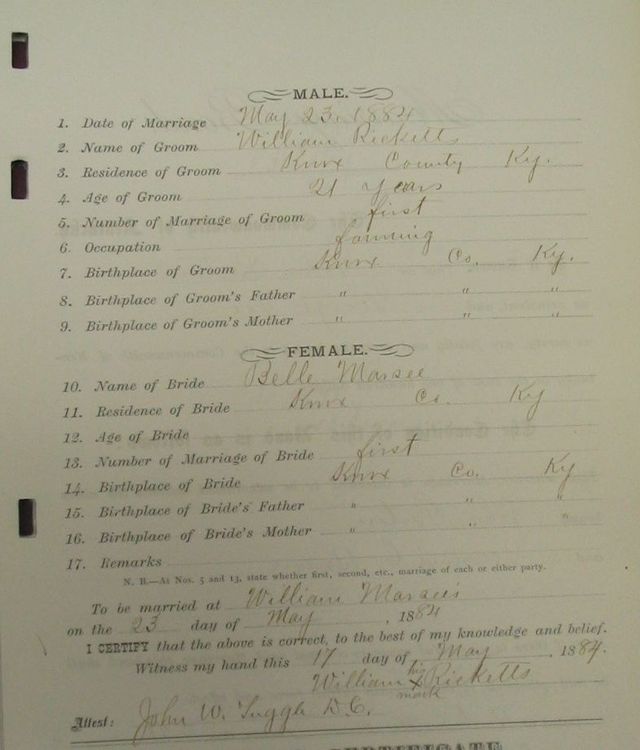 MALE.
1. Date of Marriage May 23, 1884
2. Name of Groom William Ricketts
3. Residence of Groom Knox County Ky.
4. Age of Groom 21 years
5. Number of Marriage of Groom first
6. Occupation farming
7. Birthplace of Groom Knox Co. Ky.
8. Birthplace of Groom's Father " " "
9. Birthplace of Groom's Mother " " "
FEMALE.
10. Name of Bride Belle Marsee
11. Residence of Bride Knox Co. Ky
12. Age of Bride
13. Number of Marriage of Bride first
14. Birthplace of Bride Knox Co. Ky
15. Birthplace of Bride's Father " " "
16. Birthplace of Bride's Mother " " "
17. Remarks
N. B.—As Nos. 5 and 13, state whether first, second, etc., marriage of each or either party.
To be married at William Marsee's
on the 23 day of May, 1884
I CERTIFY that the above is correct, to the best of my knowledge and belief.
Witness my hand this 17 day of May, 1884.
William his X mark Ricketts
Attest: John W. Tuggle D.C.
CERTIFICATE